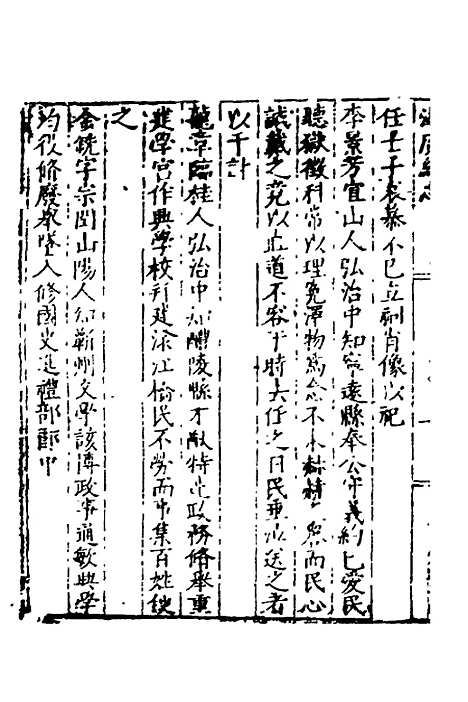 任士子哀慕不已立祠肖像以祀
李景芳宜山人弘治中知寧遠縣奉公守義約己愛民
聽獄徵科常以理冤澤物為念不求赫赫之譽而民心
誠戴之竟以直道不容于時去任之日民垂泣送之者
以千計
龍章臨桂人弘治中知醴陵縣才猷特達政務脩舉重
建學宮作興學校行建淥江橋民不勞而事集百姓便
之
金銑字宗閏山陽人知蘄州文學該博政事通敏興學
均役脩廢舉墜入修國史進禮部郎中